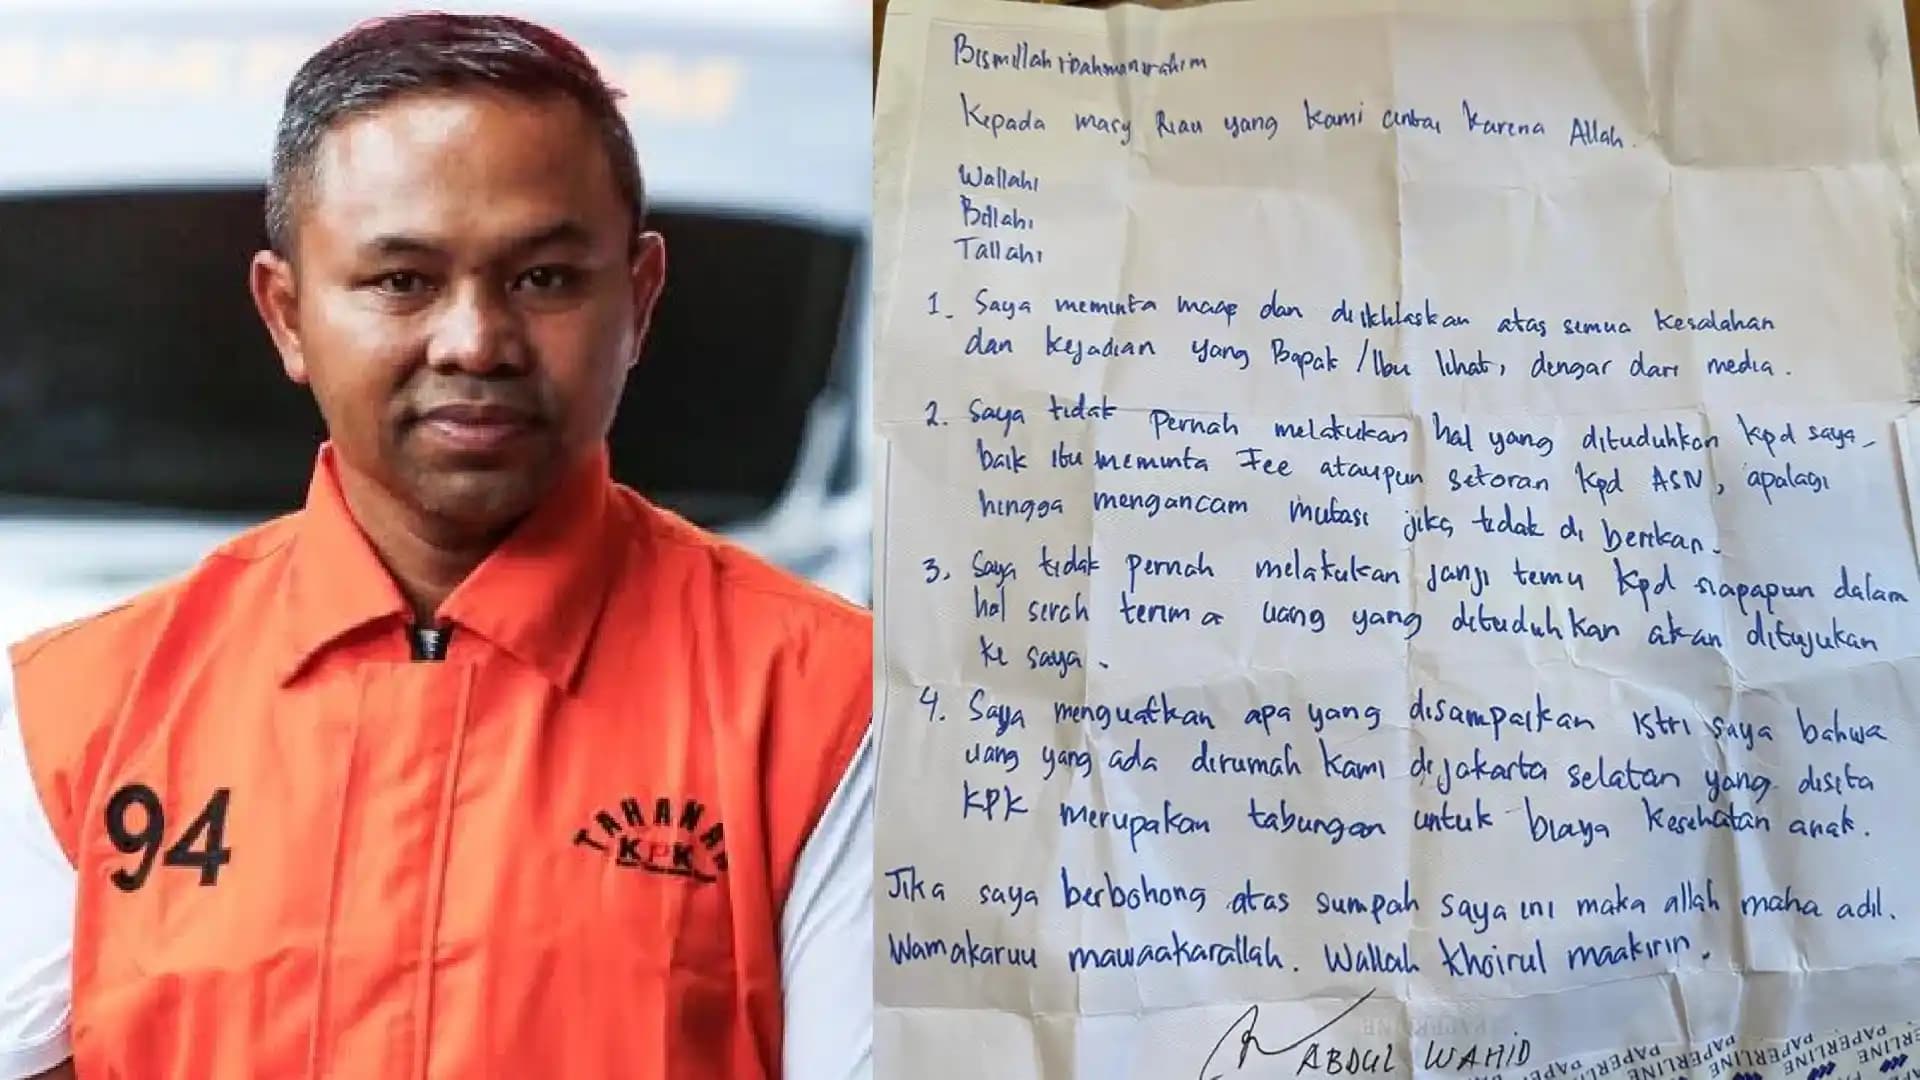 94
TAHANAN
KPK
Bismillahirahmanirahim
Kepada masy Riau yang kami cintai karena Allah.
Wallahi
Billahi
Tallahi
1. Saya meminta maap dan diikhlaskan atas semua kesalahan
dan kejadian yang Bapak /Ibu lihat, dengar dari media.
2. Saya tidak pernah melakukan hal yang dituduhkan kpd saya
baik itu meminta Fee ataupun setoran kpd ASN, apalagi
hingga mengancam mutasi jika tidak di berikan.
3. Saya tidak pernah melakukan janji temu kpd siapapun dalam
hal serah terima uang yang dituduhkan akan ditujukan
ke saya.
4. Saya menguatkan apa yang disampaikan istri saya bahwa
uang yang ada dirumah kami dijakarta selatan yang disita
KPK merupakan tabungan untuk biaya kesehatan anak.
Jika saya berbohong atas sumpah saya ini maka allah maha adil.
Wamakaruu mawaakarallah. Wallah khoirul maakirin.
ABDUL WAHID
PAPERLINE PAPERLINE PAPERLINE